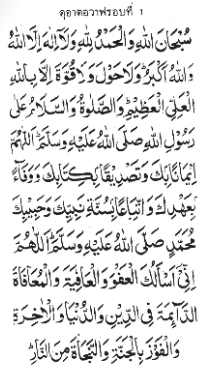 ดุอาตอวาฟรอบที่ 1
سُبْحَانَ اللهِ وَالْحَمْدُ لِلّٰهِ وَلَآ اِلٰهَ اِلَّا اللهُ
وَاللهُ اَكْبَرُ وَلَا حَوْلَ وَلَا قُوَّةَ اِلَّا بِاللهِ
الْعَلِيِّ الْعَظِيْمِ وَالصَّلٰوةُ وَالسَّلَامُ عَلٰى
رَسُوْلِ اللهِ صَلَّى اللهُ عَلَيْهِ وَسَلَّمَ اَللّٰهُمَّ
اِيْمَانًا بِكَ وَتَصْدِيْقًا بِكِتَابِكَ وَوَفَاءً
بِعَهْدِكَ وَاتِّبَاعًا لِسُنَّةِ نَبِيِّكَ وَحَبِيْبِكَ
مُحَمَّدٍ صَلَّى اللهُ عَلَيْهِ وَسَلَّمَ اَللّٰهُمَّ
اِنِّيْ اَسْاَلُكَ الْعَفْوَ وَالْعَافِيَةَ وَالْمُعَافَاةَ
الدَّآئِمَةَ فِي الدِّيْنِ وَالدُّنْيَا وَالْاٰخِرَةِ
وَالْفَوْزَ بِالْجَنَّةِ وَالنَّجَاةَ مِنَ النَّارِ